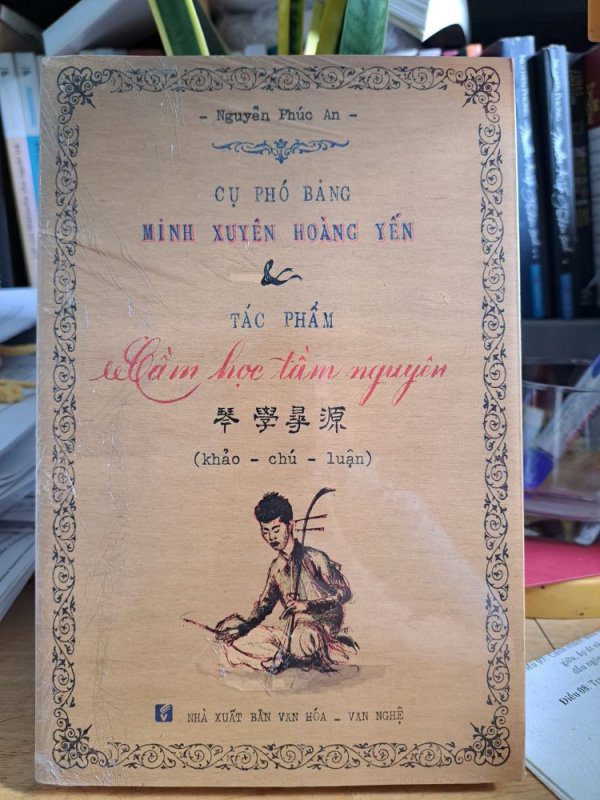 - Nguyễn Phúc An -
CỤ PHÓ BẢNG
MINH XUYÊN HOÀNG YẾN
&
TÁC PHẨM
Cầm học tầm nguyên
琴學尋源
(khảo - chú - luận)
NHÀ XUẤT BẢN VĂN HÓA - VĂN NGHỆ
Điều 08. Tr